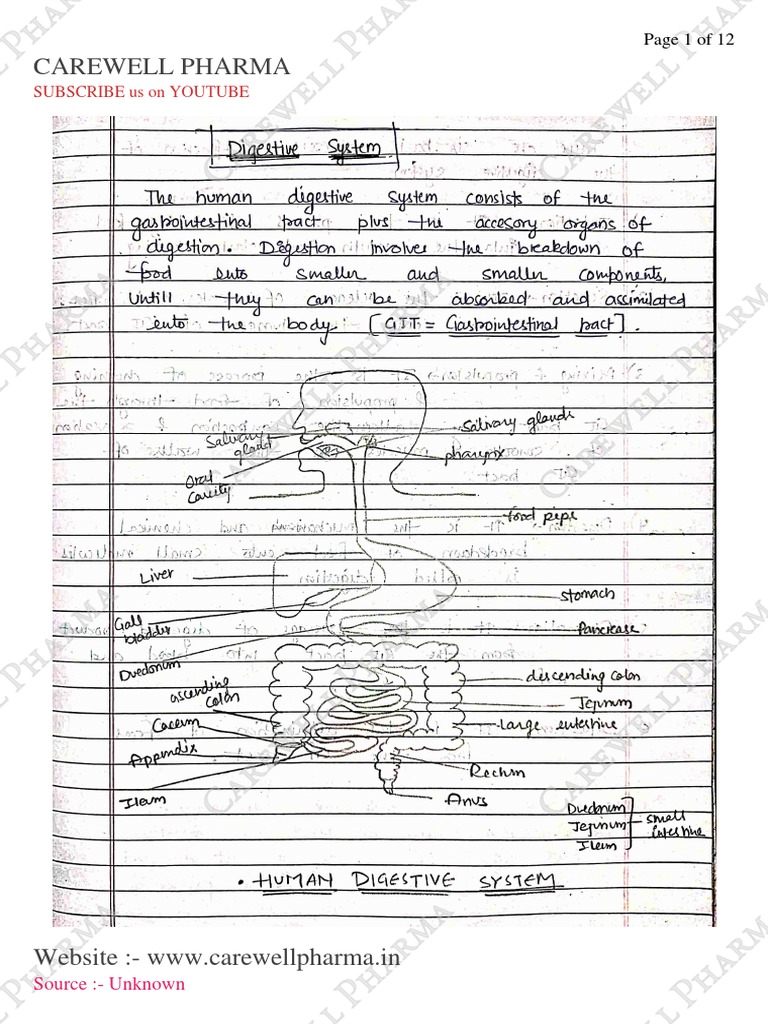 Page 1 of 12
CAREWELL PHARMA
SUBSCRIBE us on YOUTUBE
Digestive System
The human digestive system consists of the
gastrointestinal tract plus the accesory organs of
digestion. Digestion involves the breakdown of
food into smaller and smaller components,
untill they can be absorbed and assimilated
into the body. [GIT = Gastrointestinal tract].
Salivary glands
Salivary
gland
pharynx
Oral
cavity
food pipe
Liver
stomach
Gall
bladder
Pancrease
Duedonum
descending colon
ascending
colon
Jejunum
Caecum
large intestine
Appendix
Rectum
Ileum
Anus
Duedonum
Jejunum
Ileum
small
intestine
• HUMAN DIGESTIVE SYSTEM
Website :- www.carewellpharma.in
Source :- Unknown
CAREWELL PHARMA